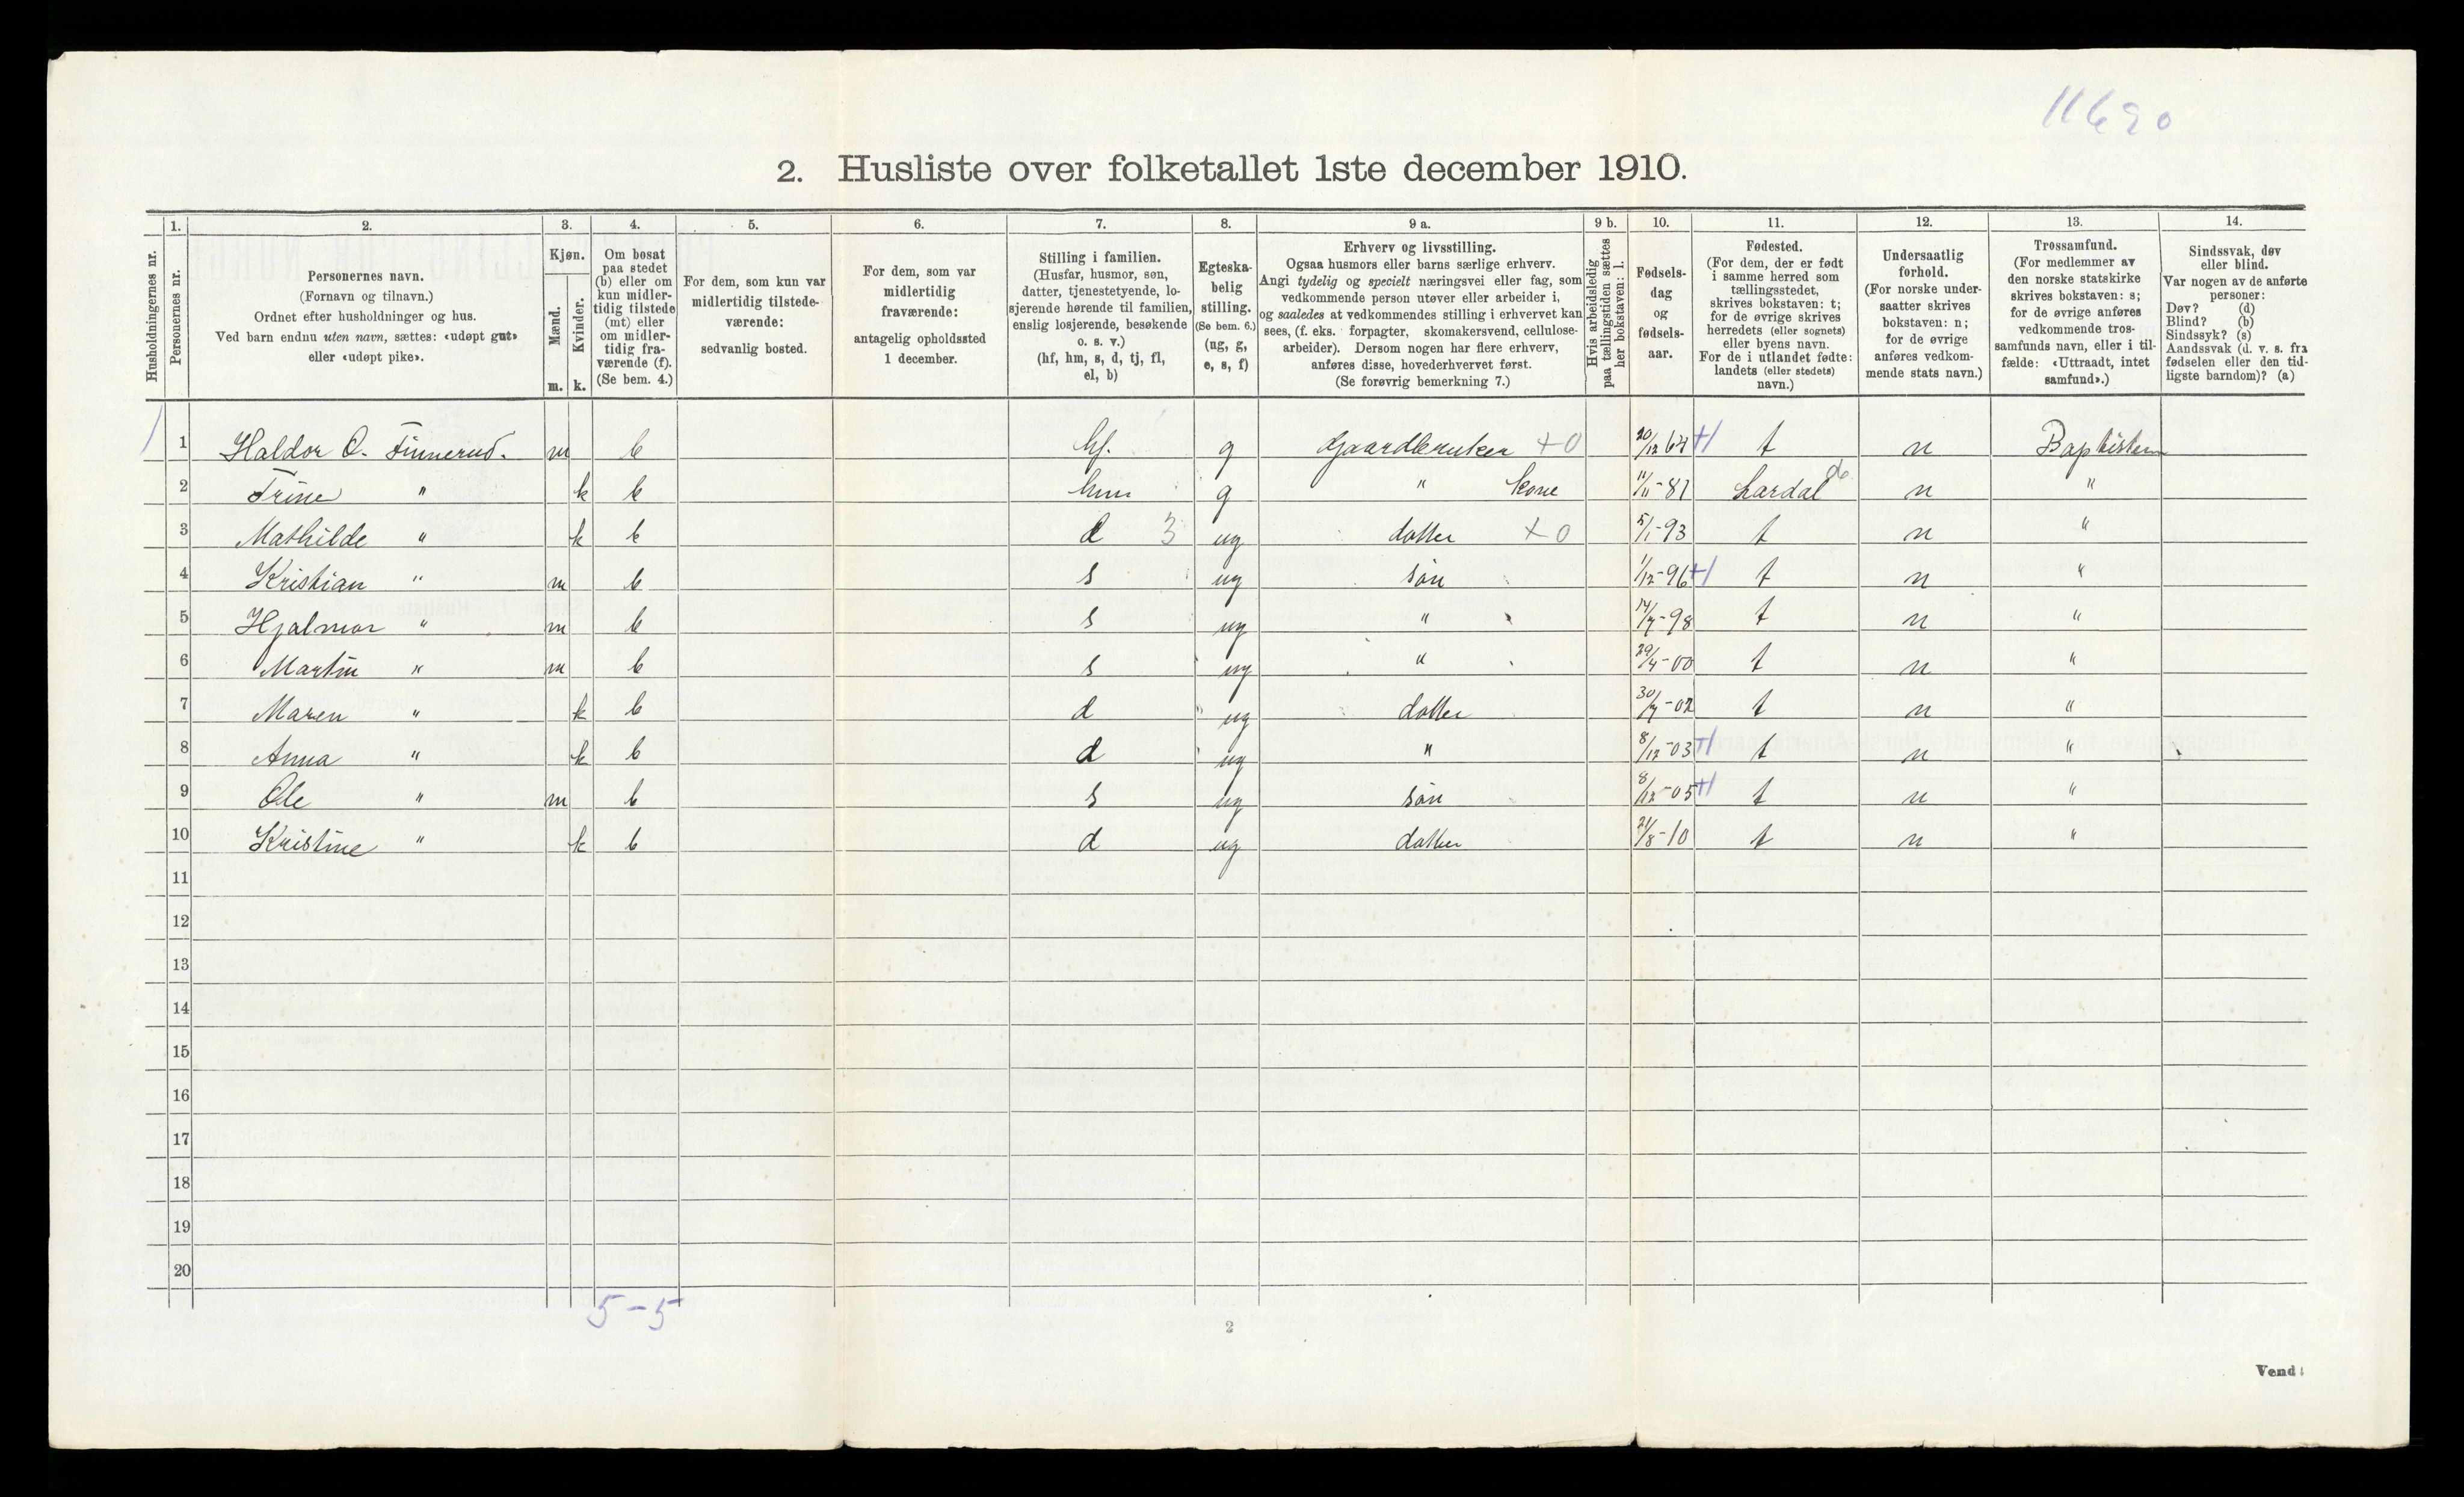 11690
2. Husliste over folketallet 1ste december 1910.
Husholdningernes nr.
1.
Personernes nr.
2.
Personernes navn.
(Fornavn og tilnavn.)
Ordnet efter husholdninger og hus.
Ved barn endnu uten navn, sættes: «udøpt gut»
eller «udøpt pike».
3.
Kjøn.
Mænd.
m.
Kvinder.
k.
4.
Om bosat
paa stedet
(b) eller om
kun midler-
tidig tilstede
(mt) eller
om midler-
tidig fra-
værende (f).
(Se bem. 4.)
5.
For dem, som kun var
midlertidig tilstede-
værende:
sedvanlig bosted.
6.
For dem, som var
midlertidig
fraværende:
antagelig opholdssted
1 december.
7.
Stilling i familien.
(Husfar, husmor, søn,
datter, tjenestetyende, lo-
sjerende hørende til familien,
enslig losjerende, besøkende
o. s. v.)
(hf, hm, s, d, tj, fl,
el, b)
8.
Egteska-
belig
stilling.
(Se bem. 6.)
(ug, g,
e, s, f)
9 a.
Erhverv og livsstilling.
Ogsaa husmors eller barns særlige erhverv.
Angi tydelig og specielt næringsvei eller fag, som
vedkommende person utøver eller arbeider i,
og saaledes at vedkommendes stilling i erhvervet kan
sees, (f. eks. forpagter, skomakersvend, cellulose-
arbeider). Dersom nogen har flere erhverv,
anføres disse, hovederhvervet først.
(Se forøvrig bemerkning 7.)
9 b.
Hvis arbeidsledig
paa tællingstiden sættes
her bokstaven: l.
10.
Fødsels-
dag
og
fødsels-
aar.
11.
Fødested.
(For dem, der er født
i samme herred som
tællingsstedet,
skrives bokstaven: t;
for de øvrige skrives
herredets (eller sognets)
eller byens navn.
For de i utlandet fødte:
landets (eller stedets)
navn.)
12.
Undersaatlig
forhold.
(For norske under-
saatter skrives
bokstaven: n;
for de øvrige
anføres vedkom-
mende stats navn.)
13.
Trossamfund.
(For medlemmer av
den norske statskirke
skrives bokstaven: s;
for de øvrige anføres
vedkommende tros-
samfunds navn, eller i til-
fælde: «Uttraadt, intet
samfund».)
14.
Sindssvak, døv
eller blind.
Var nogen av de anførte
personer:
Døv? (d)
Blind? (b)
Sindssyk? (s)
Aandssvak (d. v. s. fra
fødselen eller den tid-
ligste barndom)? (a)
1 Haldor O. Finnerud. m b hf. g Gaardbruker +0 20/12 64 +1 t n Baptistern
2 Trine " k b hm g " kone 11/11-81 Lardal 06 n "
3 Mathilde " k b d 3 ug datter +0 5/1-93 t n "
4 Kristian " m b s ug søn 1/12-96 +1 t n "
5 Hjalmar " m b s ug " 14/7-98 t n "
6 Martin " m b s ug " 29/4-00 t n "
7 Maren " k b d ug datter 30/7-02 t n "
8 Anna " k b d ug " 8/12-03 +1 t n "
9 Ole " m b s ug søn 8/12-05 +1 t n "
10 Kristine " k b d ug datter 21/8-10 t n "
11
12
13
14
15
16
17
18
19
20
5-5
2
Vend!